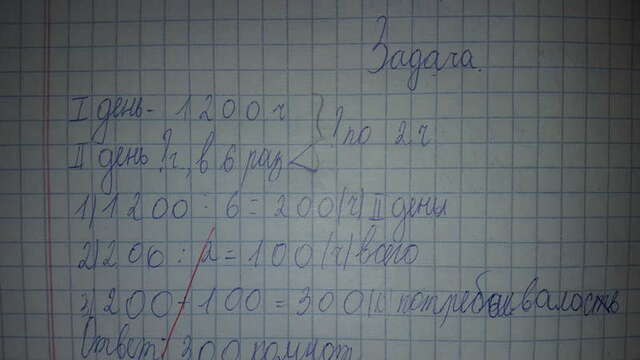 Задача.
I день - 1200 г
II день ?, в 6 раз <
? по 2 г
1) 1200 : 6 = 200 (г) II день
2) 200 : 2 = 100 (г) всего
3) 200 + 100 = 300 (к) потребовалось
Ответ: 300 комнат